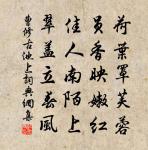 荷葉罩芙蓉
員香映嫩紅
佳人南陌上
翠蓋立春風
曹修古池上詞典網集